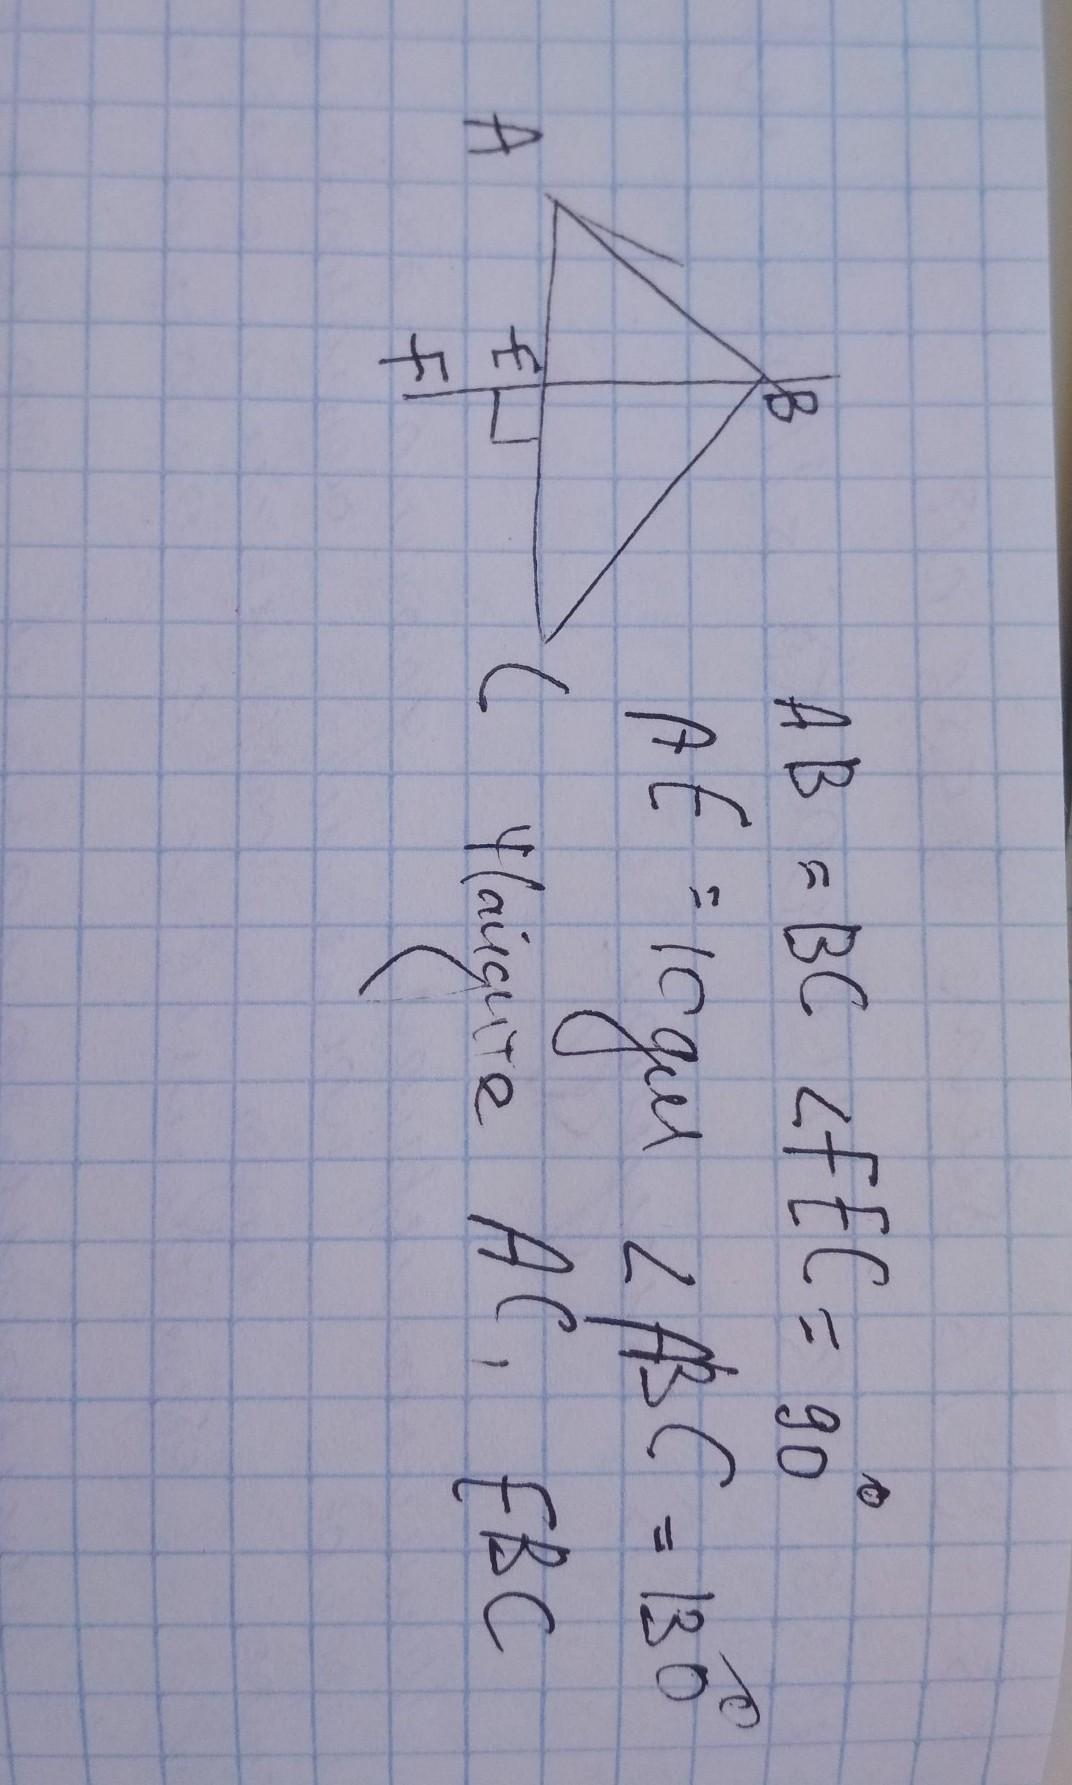 B
A
E
C
F
AB = BC ∠FEC = 90°
AE = 10 дм ∠ABC = 130°
Найдите AC, FBC